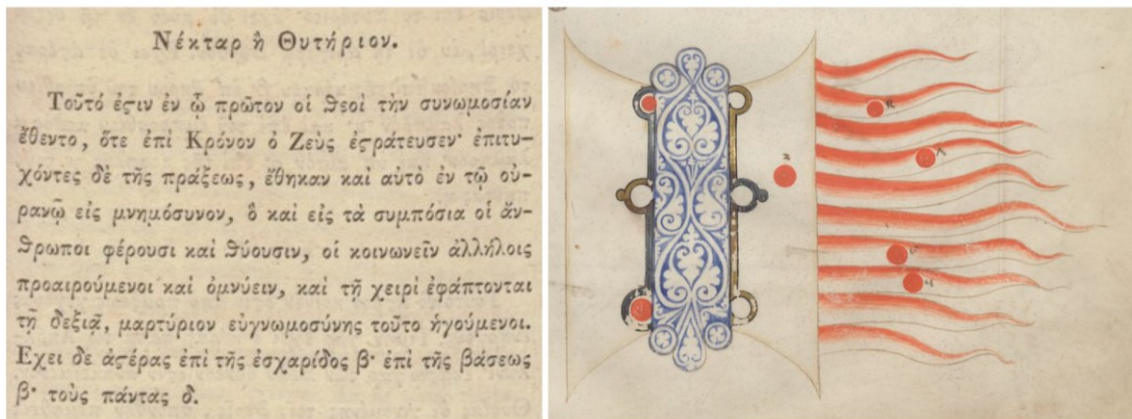 Νέκταρ ἢ Θυτήριον.
Τοῦτό ἐϛιν ἐν ᾧ πρῶτον οἱ ϑεοὶ τὴν συνωμοσίαν
ἔθεντο, ὅτε ἐπὶ Κρόνον ὁ Ζεὺς ἐϛράτευσεν· ἐπιτυ-
χόντες δὲ τῆς πράξεως, ἔθηκαν καὶ αὐτὸ ἐν τῷ οὐ-
ρανῷ εἰς μνημόσυνον, ὃ καὶ εἰς τὰ συμπόσια οἱ ἄν-
ϑρωποι φέρουσι καὶ ϑύουσιν, οἱ κοινωνεῖν ἀλλήλοις
προαιρούμενοι καὶ ὀμνύειν, καὶ τῇ χειρὶ ἐφάπτονται
τῇ δεξιᾷ, μαρτύριον εὐγνωμοσύνης τοῦτο ἡγούμενοι.
Εχει δε ἀϛέρας ἐπὶ τῆς ἐσχαρίδος β· ἐπὶ τῆς βάσεως
β· τοὺς πάντας δ.